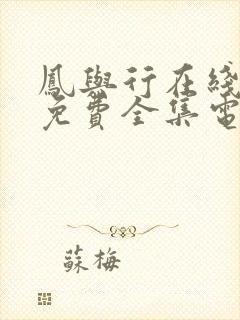 鳳與行在綫
免費全集電
蘇梅